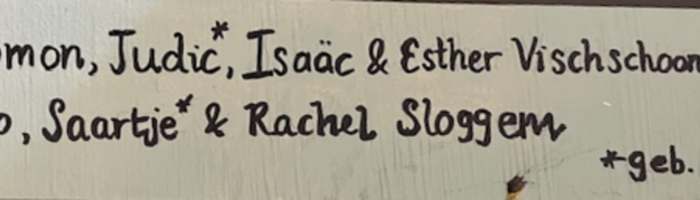 mon, Judic*, Isaäc & Esther Vischschoon
, Saartje* & Rachel Sloggem
*geb.